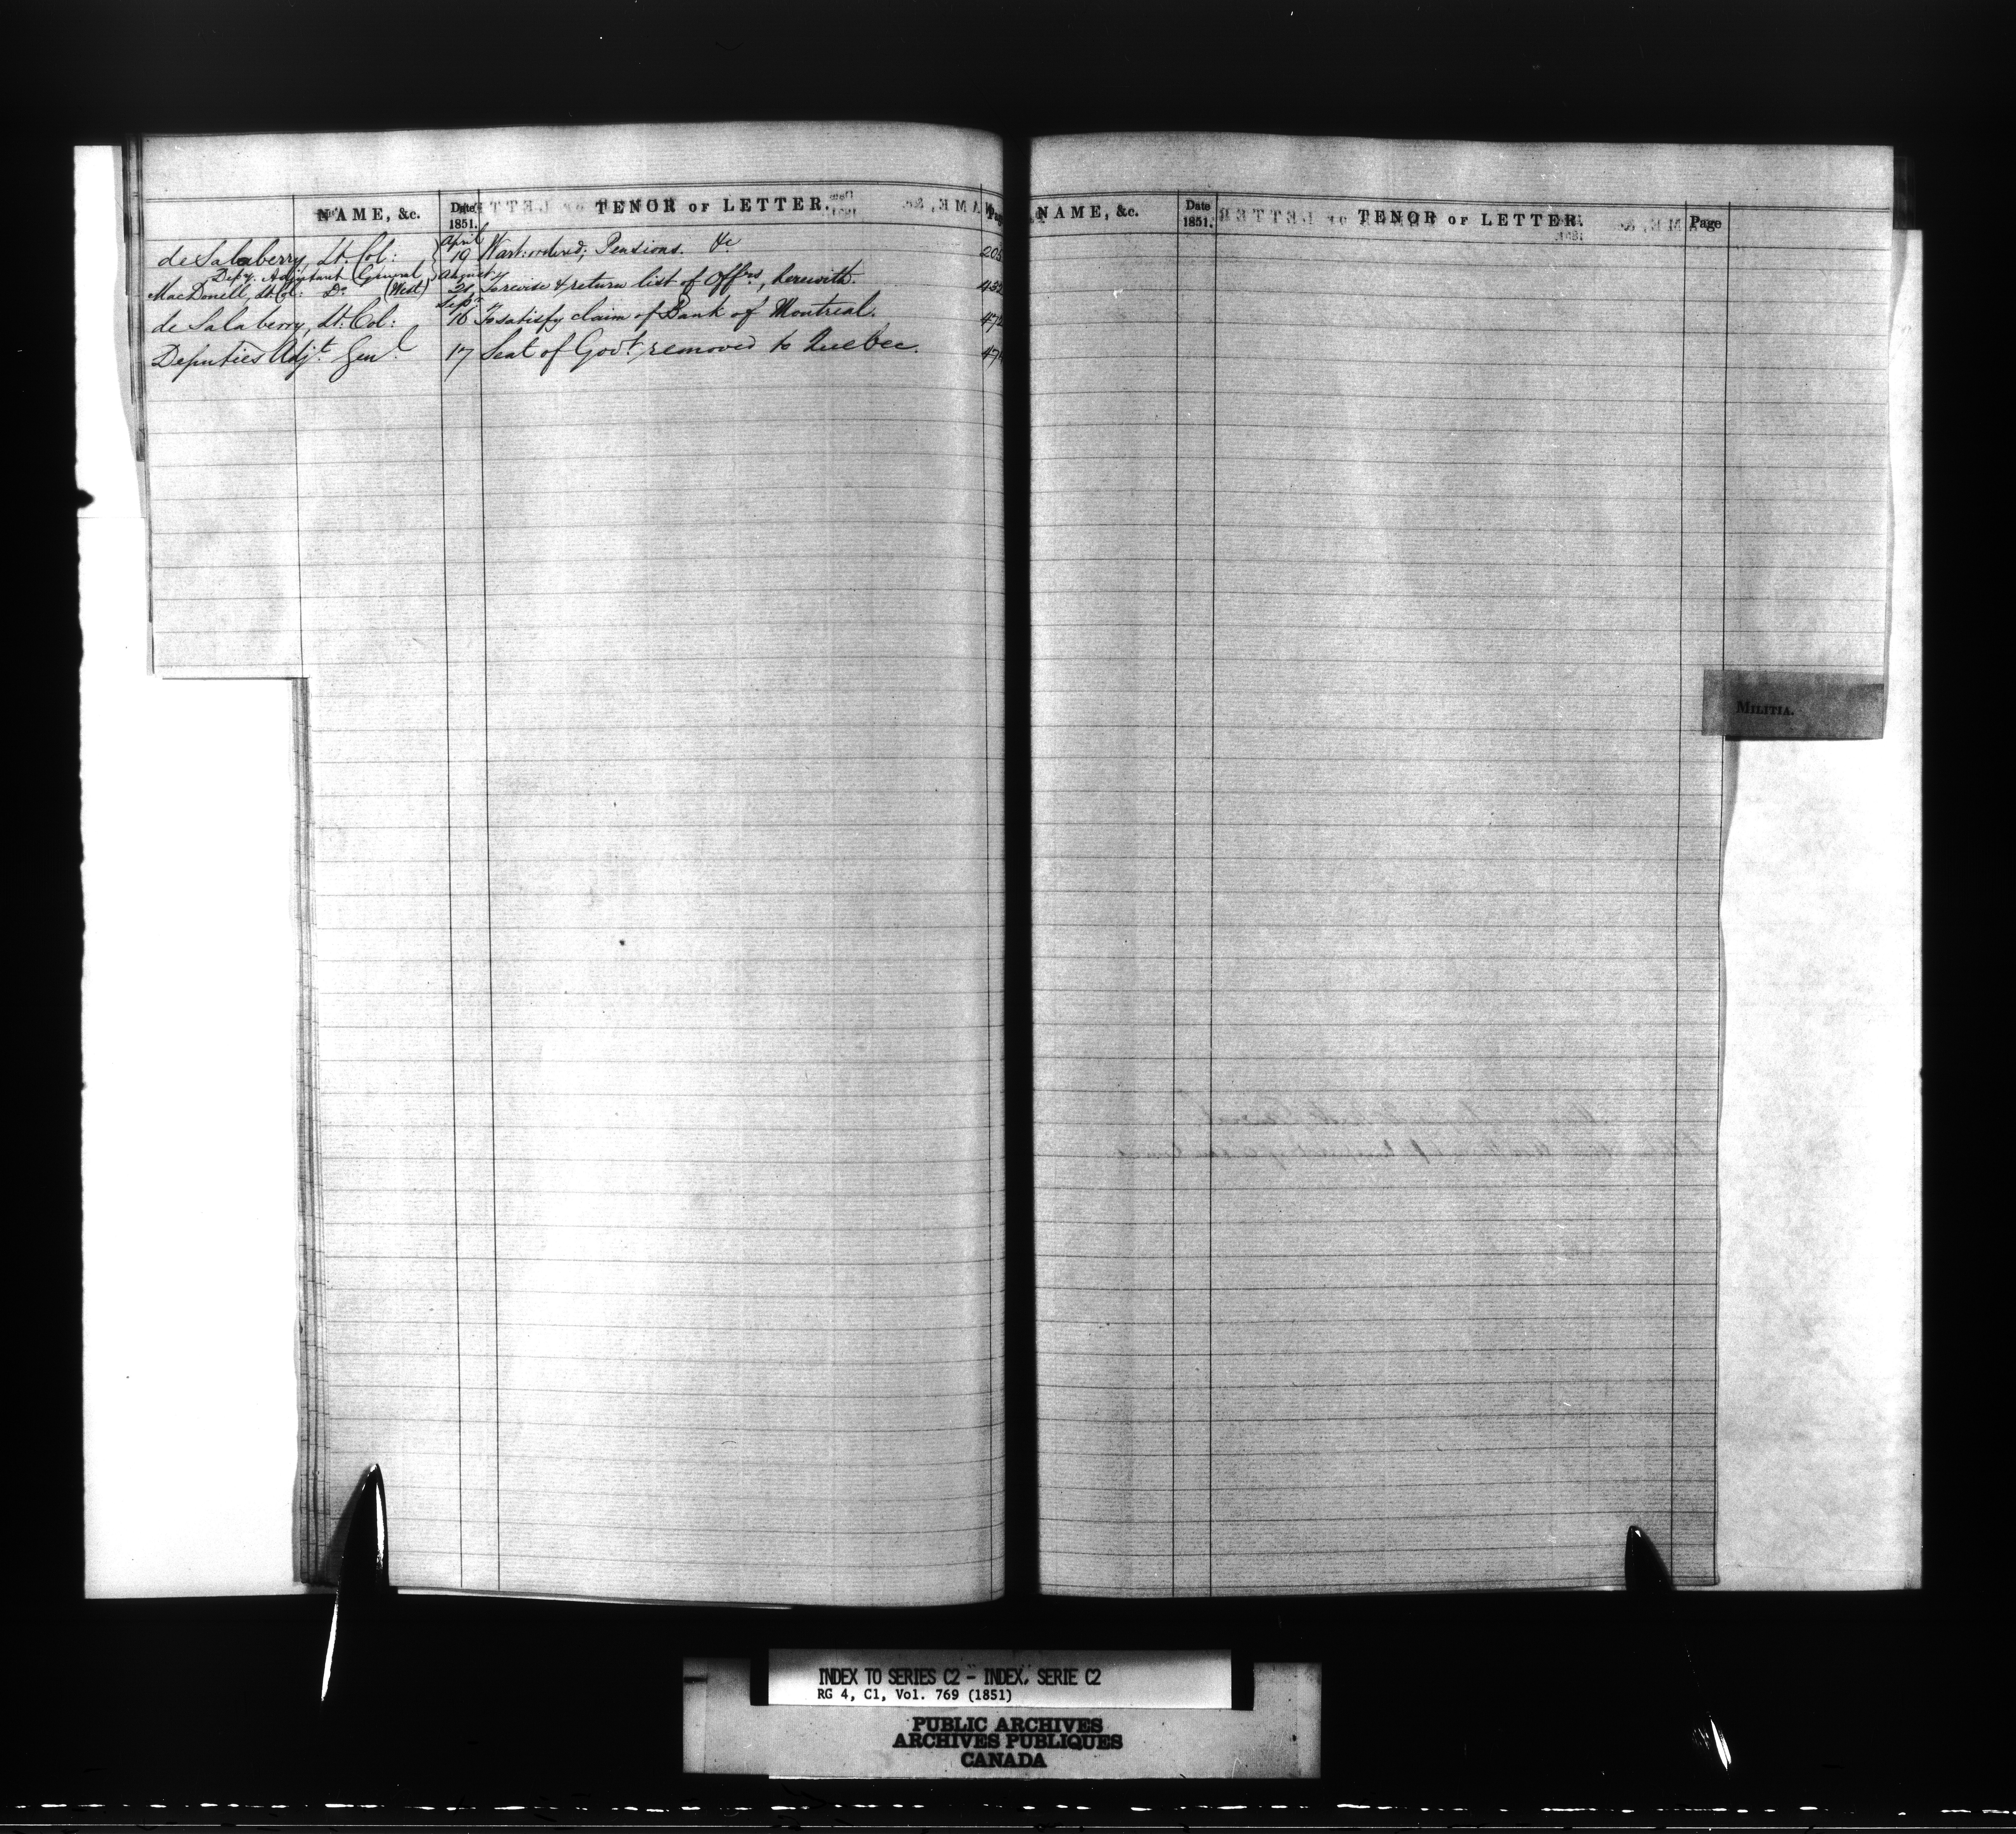 NAME, &c. Date 1851. TENOR OF LETTER. Page
de Salaberry, Lt. Col: April 19 Wart: ordered; Pensions. &c 205
Depy. Adjutant General,
MacDonell, Lt. Col: Do (West) August 21 To revise & return list of Offrs, herewith. 432
de Salaberry, Lt: Col: Sepr 16 To satisfy claim of Bank of Montreal.
Deputies Adjt. Genl. 17 Seat of Govt removed to Quebec.
NAME, &c. Date 1851. TENOR OF LETTER. Page
MILITIA.
INDEX TO SERIES C2 - INDEX, SERIE C2
RG 4, C1, Vol. 769 (1851)
PUBLIC ARCHIVES
ARCHIVES PUBLIQUES
CANADA